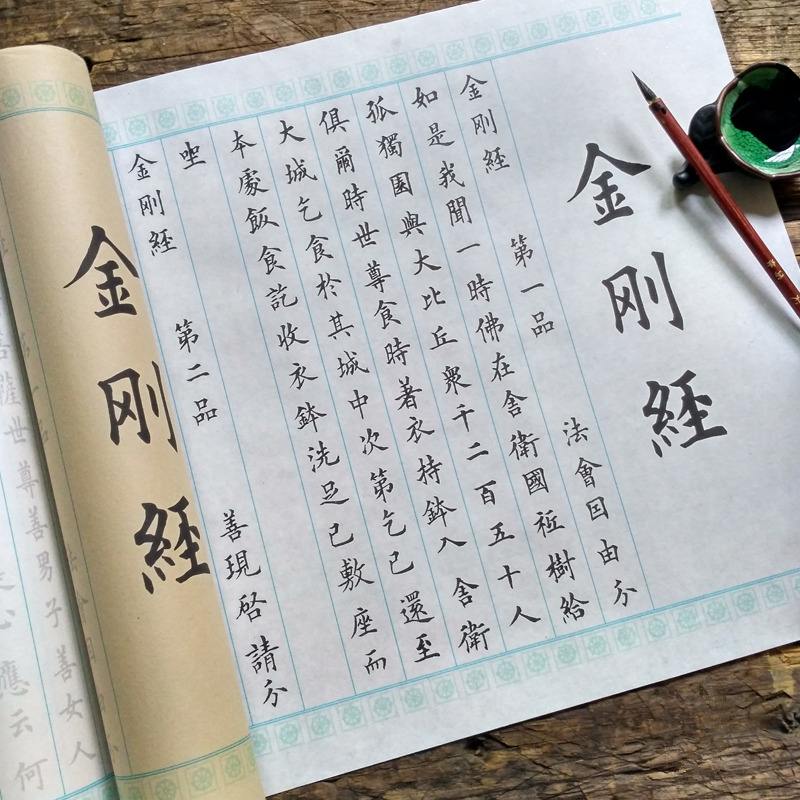 金刚經
金刚經 第一品 法會囙由分
如是我聞一時佛在舍衛國祇樹給
孤獨園與大比丘衆千二百五十人
俱爾時世尊食時著衣持鉢入舍衛
大城乞食於其城中次第乞已還至
本處飯食訖收衣鉢洗足已敷座而
坐
金刚經 第二品 善現啓請分
金刚經
薩世尊善男子善女人
心應云何